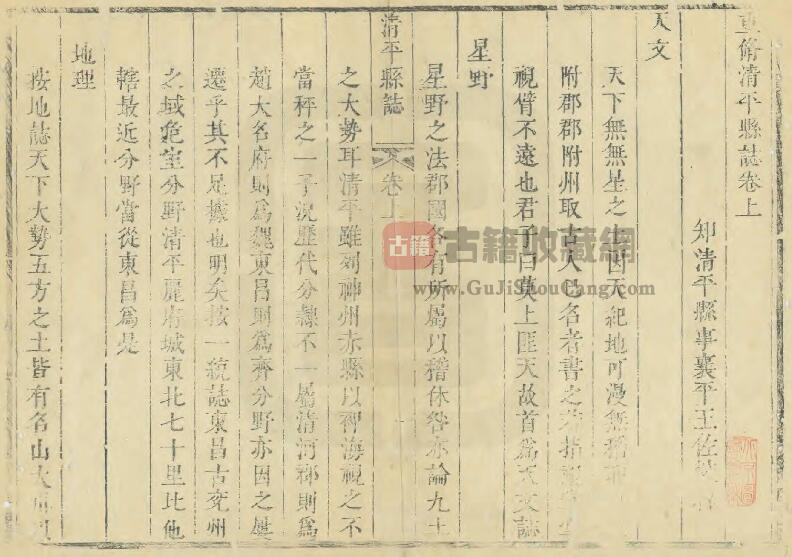 重脩清平縣誌卷上
知清平縣事襄平王佐
天文
天下無無星之土因天紀地可漫無稽
附郡郡附州取古人已名者書之若指
視臂不遠也君子曰莫上匪天故首爲天文誌
星野
星野之法郡國各有所屬以稽休咎亦論九土
清平縣誌 卷上
之大勢耳清平雖列神州赤縣以裨海視之不
當稗之一子況歷代分隸不一屬清河郡則爲
趙大名府則爲魏東昌則爲齊分野亦因之屢
遷乎其不足據也明矣按一統誌東昌古兖州
之域危室分野清平麗府城東北七十里比他
轄最近分野當從東昌爲是
地理
按地誌天下大勢五方之土皆有名山大
古籍
古籍收藏網
www.GuJiShouCang.com